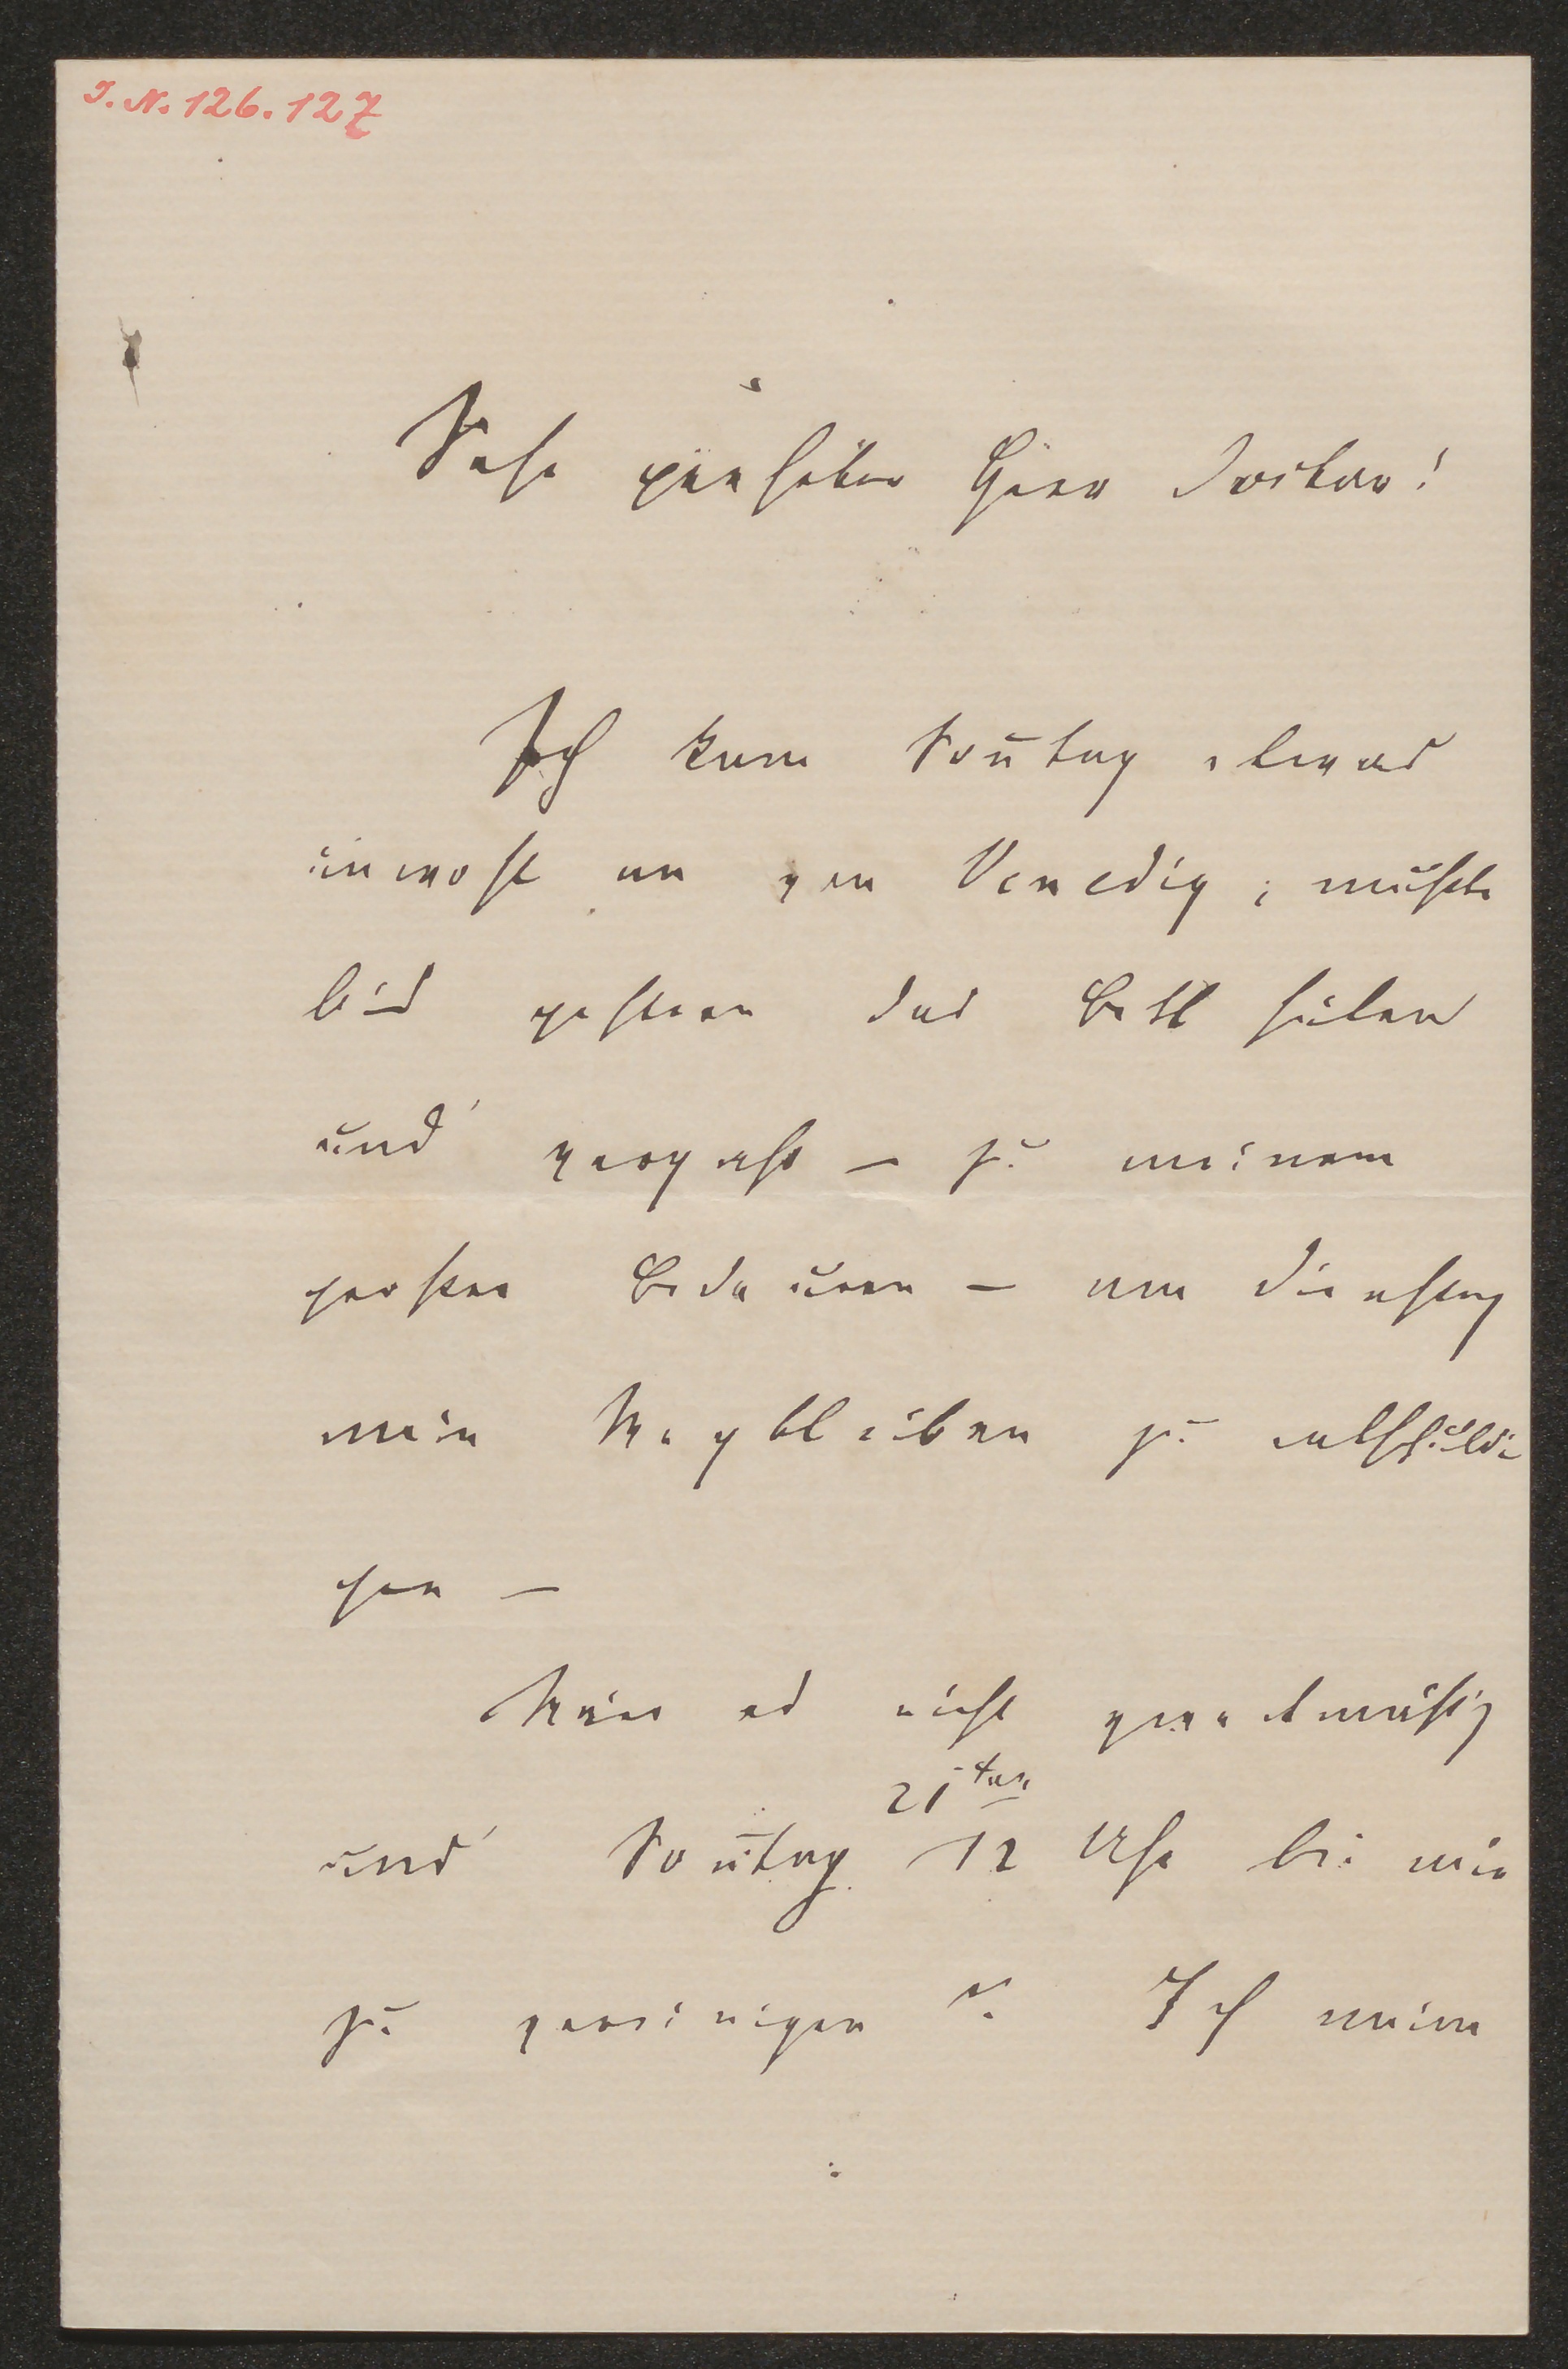 I. N. 126.127
Sehr geehrter Herr Doctor!
Ich kam Sontag etwas
unwohl an von Venedig; mußte
bis gestern das Bett hüten
und vergaß – zu meinem
großen Bedauern – am Dienstag
mein Wegbleiben zu entschuldi
gen –
Wäre es nicht zweckmäßig
uns Sontag 21ten 12 Uhr bei mir
zu vereinigen? Ich meine